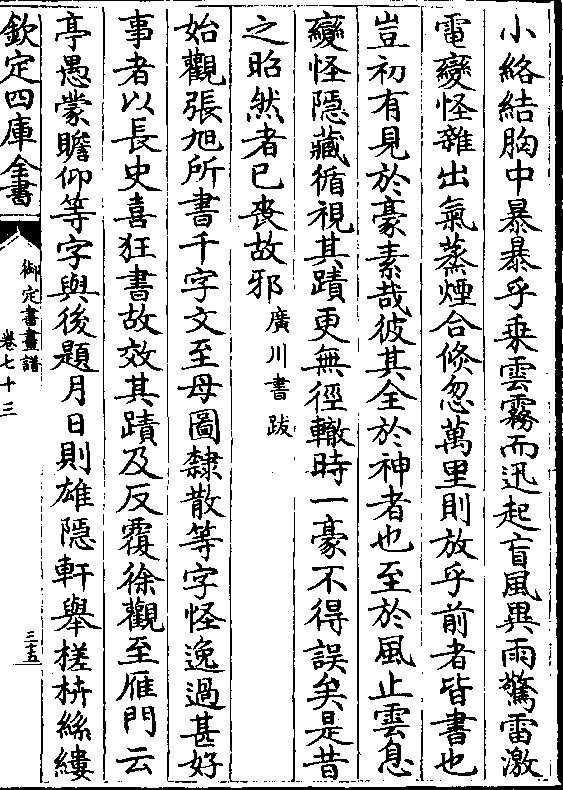 小絡結胸中暴暴乎乘雲霧而迅起盲風異雨驚雷激
電變怪雜出氣蒸煙合倏忽萬里則放乎前者皆書也
豈初有見於豪素哉彼其全於神者也至於風止雲息
變怪隱藏循視其蹟更無徑轍時一豪不得誤矣是昔
之昭然者已喪故邪廣川書跋
始觀張旭所書千字文至母圖隸散等字怪逸過甚好
事者以長史喜狂書故效其蹟及反覆徐觀至雁門云
亭愚蒙瞻仰等字與後題月日則雄隱軒舉槎枿絲縷
欽定四庫全書
御定書畫譜
卷七十三
三五